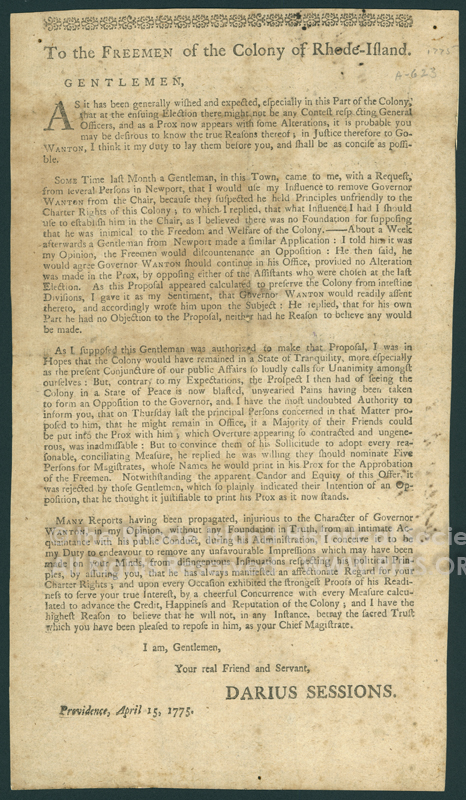 To the FREEMEN of the Colony of Rhode-Island.
1775
A-623
GENTLEMEN,
AS it has been generally wished and expected, especially in this Part of the Colony,
that at the ensuing Election there might not be any Contest respecting General
Officers, and as a Prox now appears with some Alterations, it is probable you
may be desirous to know the true Reasons thereof; in Justice therefore to Go-
WANTON, I think it my duty to lay them before you, and shall be as concise as possi-
ble.
SOME Time last Month a Gentleman, in this Town, came to me, with a Request,
from several Persons in Newport, that I would use my Influence to remove Governor
WANTON from the Chair, because they suspected he held Principles unfriendly to the
Charter Rights of this Colony; to which I replied, that what Influence I had I should
use to establish him in the Chair, as I believed there was no Foundation for supposing
that he was inimical to the Freedom and Welfare of the Colony.——About a Week
afterwards a Gentleman from Newport made a similar Application: I told him it was
my Opinion, the Freemen would discountenance an Opposition: He then said, he
would agree Governor WANTON should continue in his Office, provided no Alteration
was made in the Prox, by opposing either of the Assistants who were chosen at the last
Election. As this Proposal appeared calculated to preserve the Colony from intestine
Divisions, I gave it as my Sentiment, that Governor WANTON would readily assent
thereto, and accordingly wrote him upon the Subject: He replied, that for his own
Part he had no Objection to the Proposal, neither had he Reason to believe any would
be made.
As I supposed this Gentleman was authorized to make that Proposal, I was in
Hopes that the Colony would have remained in a State of Tranquility, more especially
as the present Conjuncture of our public Affairs so loudly calls for Unanimity amongst
ourselves: But, contrary to my Expectations, the Prospect I then had of seeing the
Colony in a State of Peace is now blasted, unwearied Pains having been taken
to form an Opposition to the Governor, and I have the most undoubted Authority to
inform you, that on Thursday last the principal Persons concerned in that Matter pro-
posed to him, that he might remain in Office, if a Majority of their Friends could
be put into the Prox with him; which Overture appearing so contracted and ungene-
rous, was inadmissable: But to convince them of his Sollicitude to adopt every rea-
sonable, conciliating Measure, he replied he was willing they should nominate Five
Persons for Magistrates, whose Names he would print in his Prox for the Approbation
of the Freemen. Notwithstanding the apparent Candor and Equity of this Offer, it
was rejected by those Gentlemen, which so plainly indicated their Intention of an Op-
position, that he thought it justifiable to print his Prox as it now stands.
MANY Reports having been propagated, injurious to the Character of Governor
WANTON, in my Opinion, without any Foundation in Truth, from an intimate Ac-
quaintance with his public Conduct, during his Administration, I conceive it to be
my Duty to endeavour to remove any unfavourable Impressions which may have been
made on your Minds, from disingenuous Insinuations respecting his political Princi-
ples, by assuring you, that he has always manifested an affectionate Regard for your
Charter Rights; and upon every Occasion exhibited the strongest Proofs of his Readi-
ness to serve your true Interest, by a cheerful Concurrence with every Measure calcu-
lated to advance the Credit, Happiness and Reputation of the Colony; and I have the
highest Reason to believe that he will not, in any Instance, betray the sacred Trust
which you have been pleased to repose in him, as your Chief Magistrate.
I am, Gentlemen,
Your real Friend and Servant,
DARIUS SESSIONS.
Providence, April 15, 1775.